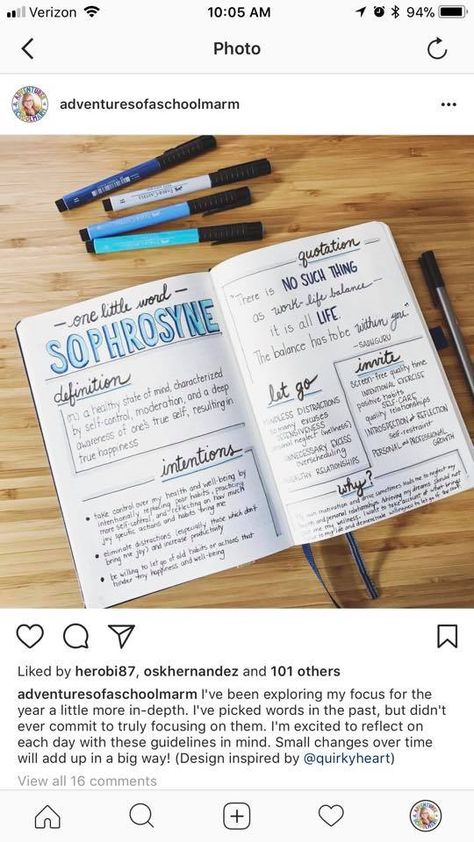 Verizon 10:05 AM 94%
Photo
adventuresofaschoolmarm
one little word
SOPHROSYNE
definition
(n.) a healthy state of mind, characterized
by self-control, moderation, and a deep
awareness of one's true self, resulting in
true happiness
intentions
• take control over my health and well-being by
intentionally replacing poor habits, practicing
more self-control, and reflecting on how much
joy specific actions and habits bring me
• eliminate distractions (especially those which don't
bring me joy) and increase productivity
• be willing to let go of old habits or actions that
hinder my happiness and well-being
quotation
"There is NO SUCH THING
as work-life balance
it is all LIFE.
The balance has to be within you."
-SADHGURU
let go
MINDLESS DISTRACTIONS
so many excuses
DEFENSIVENESS
personal neglect (wellness)
UNNECESSARY EXCESS
overscheduling
UNHEALTHY RELATIONSHIPS
invite
screen-free quality time
INTENTIONAL EXERCISE
positive habits
SELF-CARE
quality relationships
INTROSPECTION & REFLECTION
self-restraint
PERSONAL and PROFESSIONAL
GROWTH
why?
Liked by herobi87, oskhernandez and 101 others
adventuresofaschoolmarm I've been exploring my focus for the
year a little more in-depth. I've picked words in the past, but didn't
ever commit to truly focusing on them. I'm excited to reflect on
each day with these guidelines in mind. Small changes over time
will add up in a big way! (Design inspired by @quirkyheart)
View all 16 comments